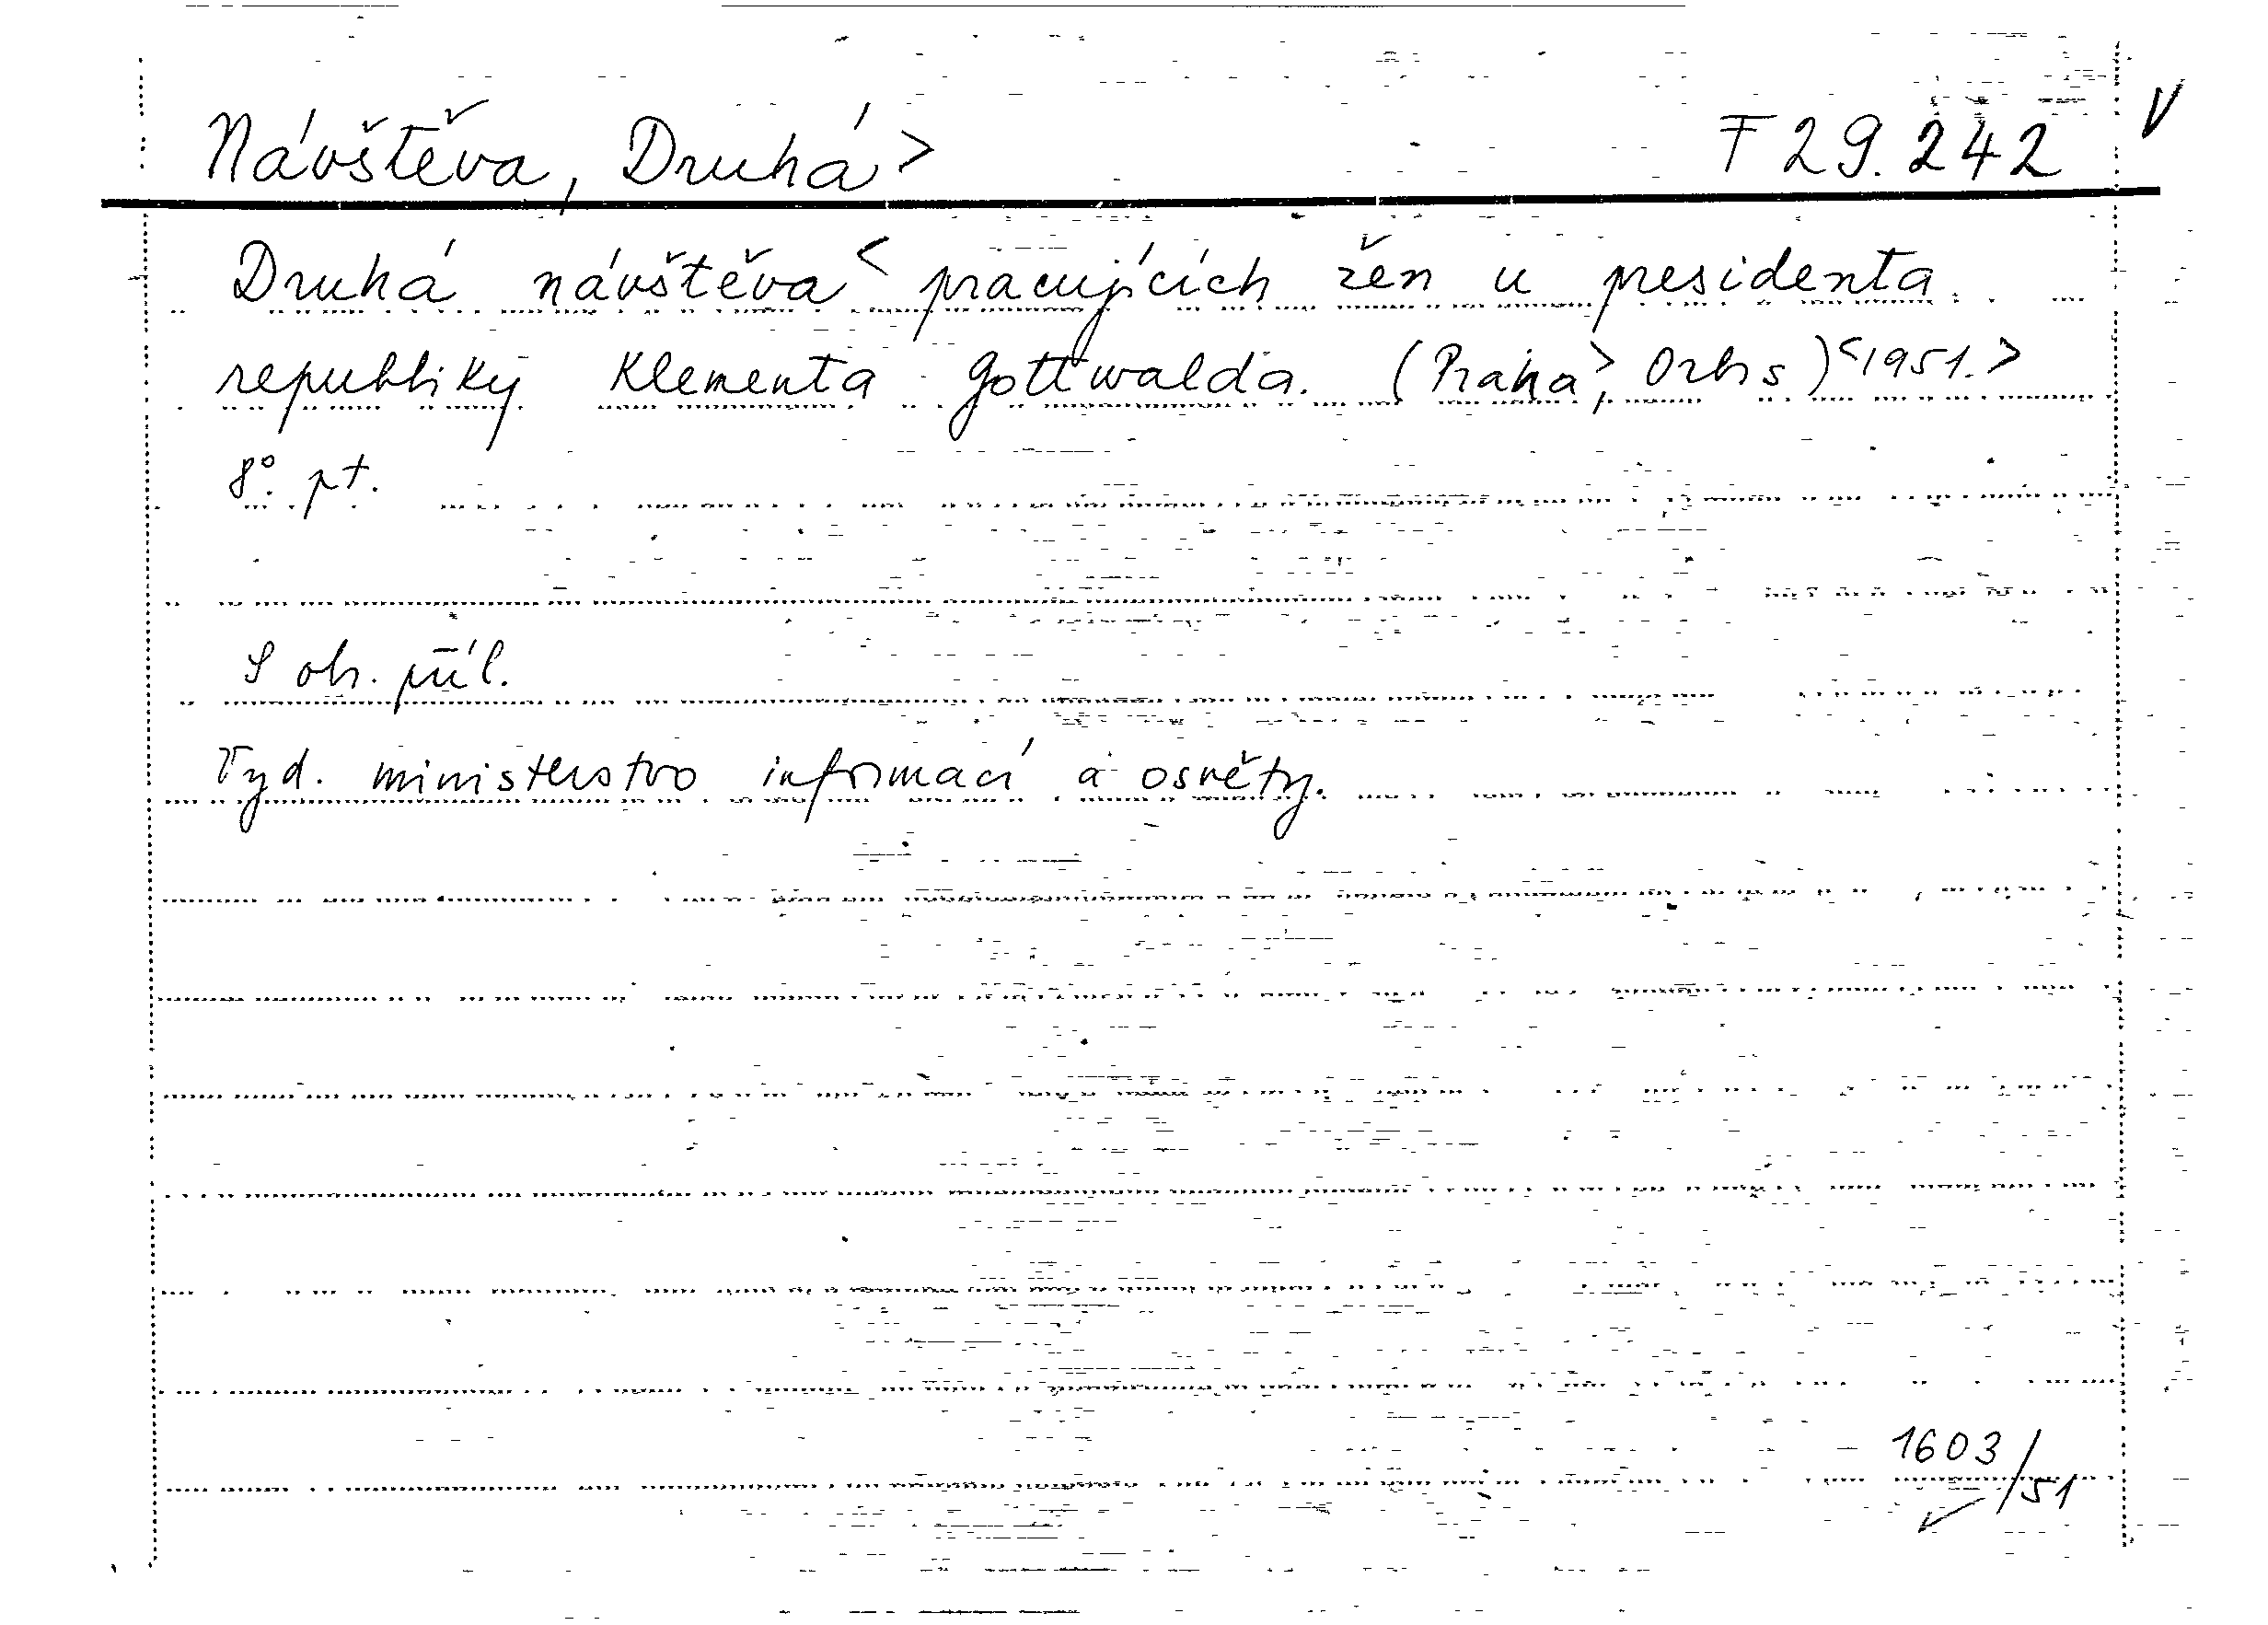 Návštěva, Druhá> F 29.242 V
Druhá návštěva < pracujících žen u presidenta
republiky Klementa Gottwalda. (Praha>, Orbis) <1951.>
8°. pt.
S obr. příl.
Vyd. ministerstvo informací a osvěty.
1603/51